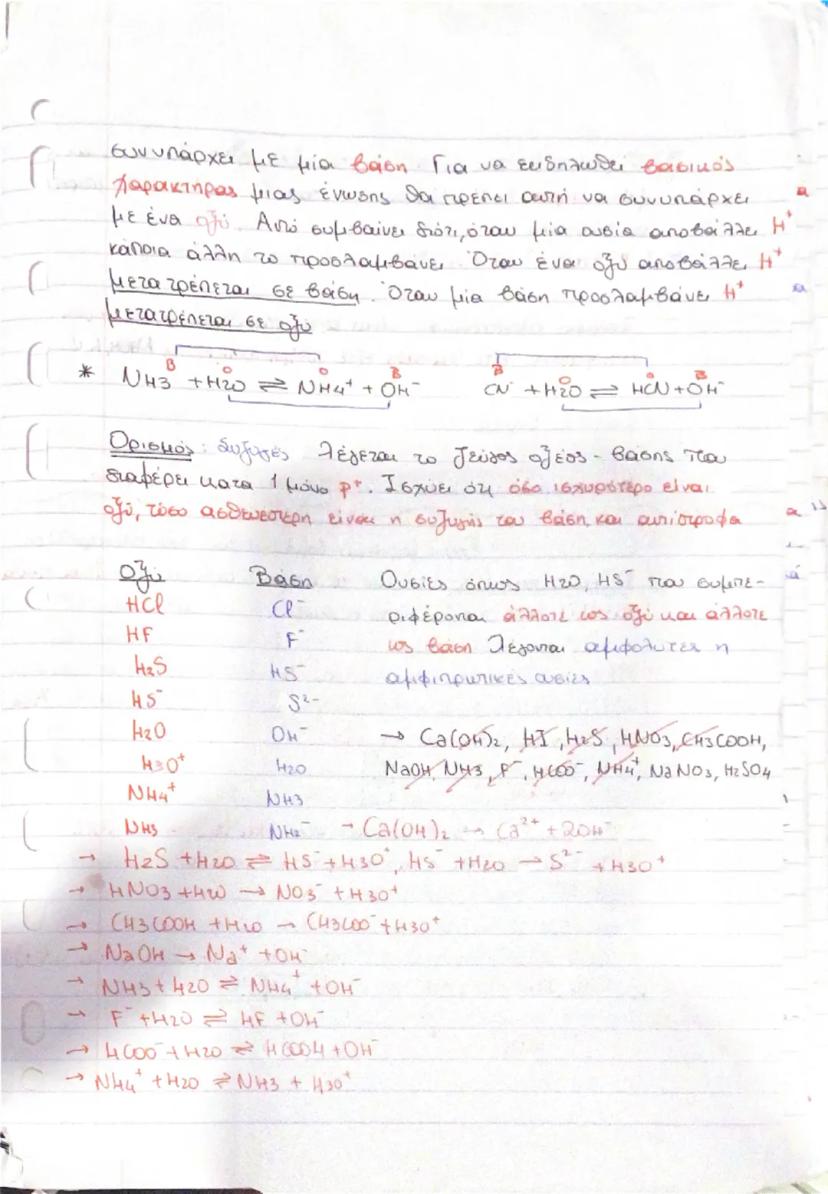 συνυπάρχει με μία βάση Για να εκδηλωθεί βασικός
χαρακτήρας μιας ένωσης θα πρέπει αυτή να συνυπάρχει
με ένα οξύ. Αυτό συμβαίνει διότι, όταν μία ουσία αποβάλλει H⁺
κάποια άλλη το προσλαμβάνει Όταν ένα οξύ αποβάλλει H⁺
μετατρέπεται σε βάση. Όταν μία βάση προσλαμβάνει H⁺
μετατρέπεται σε οξύ
Β Ο Ο Β Β Ο Ο Β
* NH3 + H2O ⇌ NH4⁺ + OH⁻ CN⁻ + H2O ⇌ HCN + OH⁻
Ορισμός: συζυγές λέγεται το ζεύγος οξέος - βάσης που
διαφέρει κατα 1 μόνο p⁺. Ισχύει ότι όσο ισχυρότερο είναι
οξύ, τόσο ασθενέστερη είναι η συζυγής του βάση και αντίστροφα
Οξύ Βάση Ουσίες όπως H2O, HS⁻ που συμπε-
HCl Cl⁻ ριφέρονται άλλοτε ως οξύ και άλλοτε
HF F⁻ ως βάση λέγονται αμφολύτες η
H2S HS⁻ αμφιπρωτικές ουσίες
HS⁻ S²⁻
H2O OH⁻ → Ca(OH)2, HI, H2S, HNO3, CH3COOH,
H3O⁺ H2O NaOH, NH3, F⁻, HCOO⁻, NH4⁺, NaNO3, H2SO4
NH4⁺ NH3
NH3 NH2⁻ → Ca(OH)2 → Ca²⁺ + 2OH⁻
→ H2S + H2O ⇌ HS⁻ + H3O⁺, HS⁻ + H2O → S²⁻ + H3O⁺
→ HNO3 + H2O → NO3⁻ + H3O⁺
→ CH3COOH + H2O → CH3COO⁻ + H3O⁺
→ NaOH → Na⁺ + OH⁻
→ NH3 + H2O ⇌ NH4⁺ + OH⁻
→ F⁻ + H2O ⇌ HF + OH⁻
→ HCOO⁻ + H2O ⇌ HCOOH + OH⁻
→ NH4⁺ + H2O ⇌ NH3 + H3O⁺